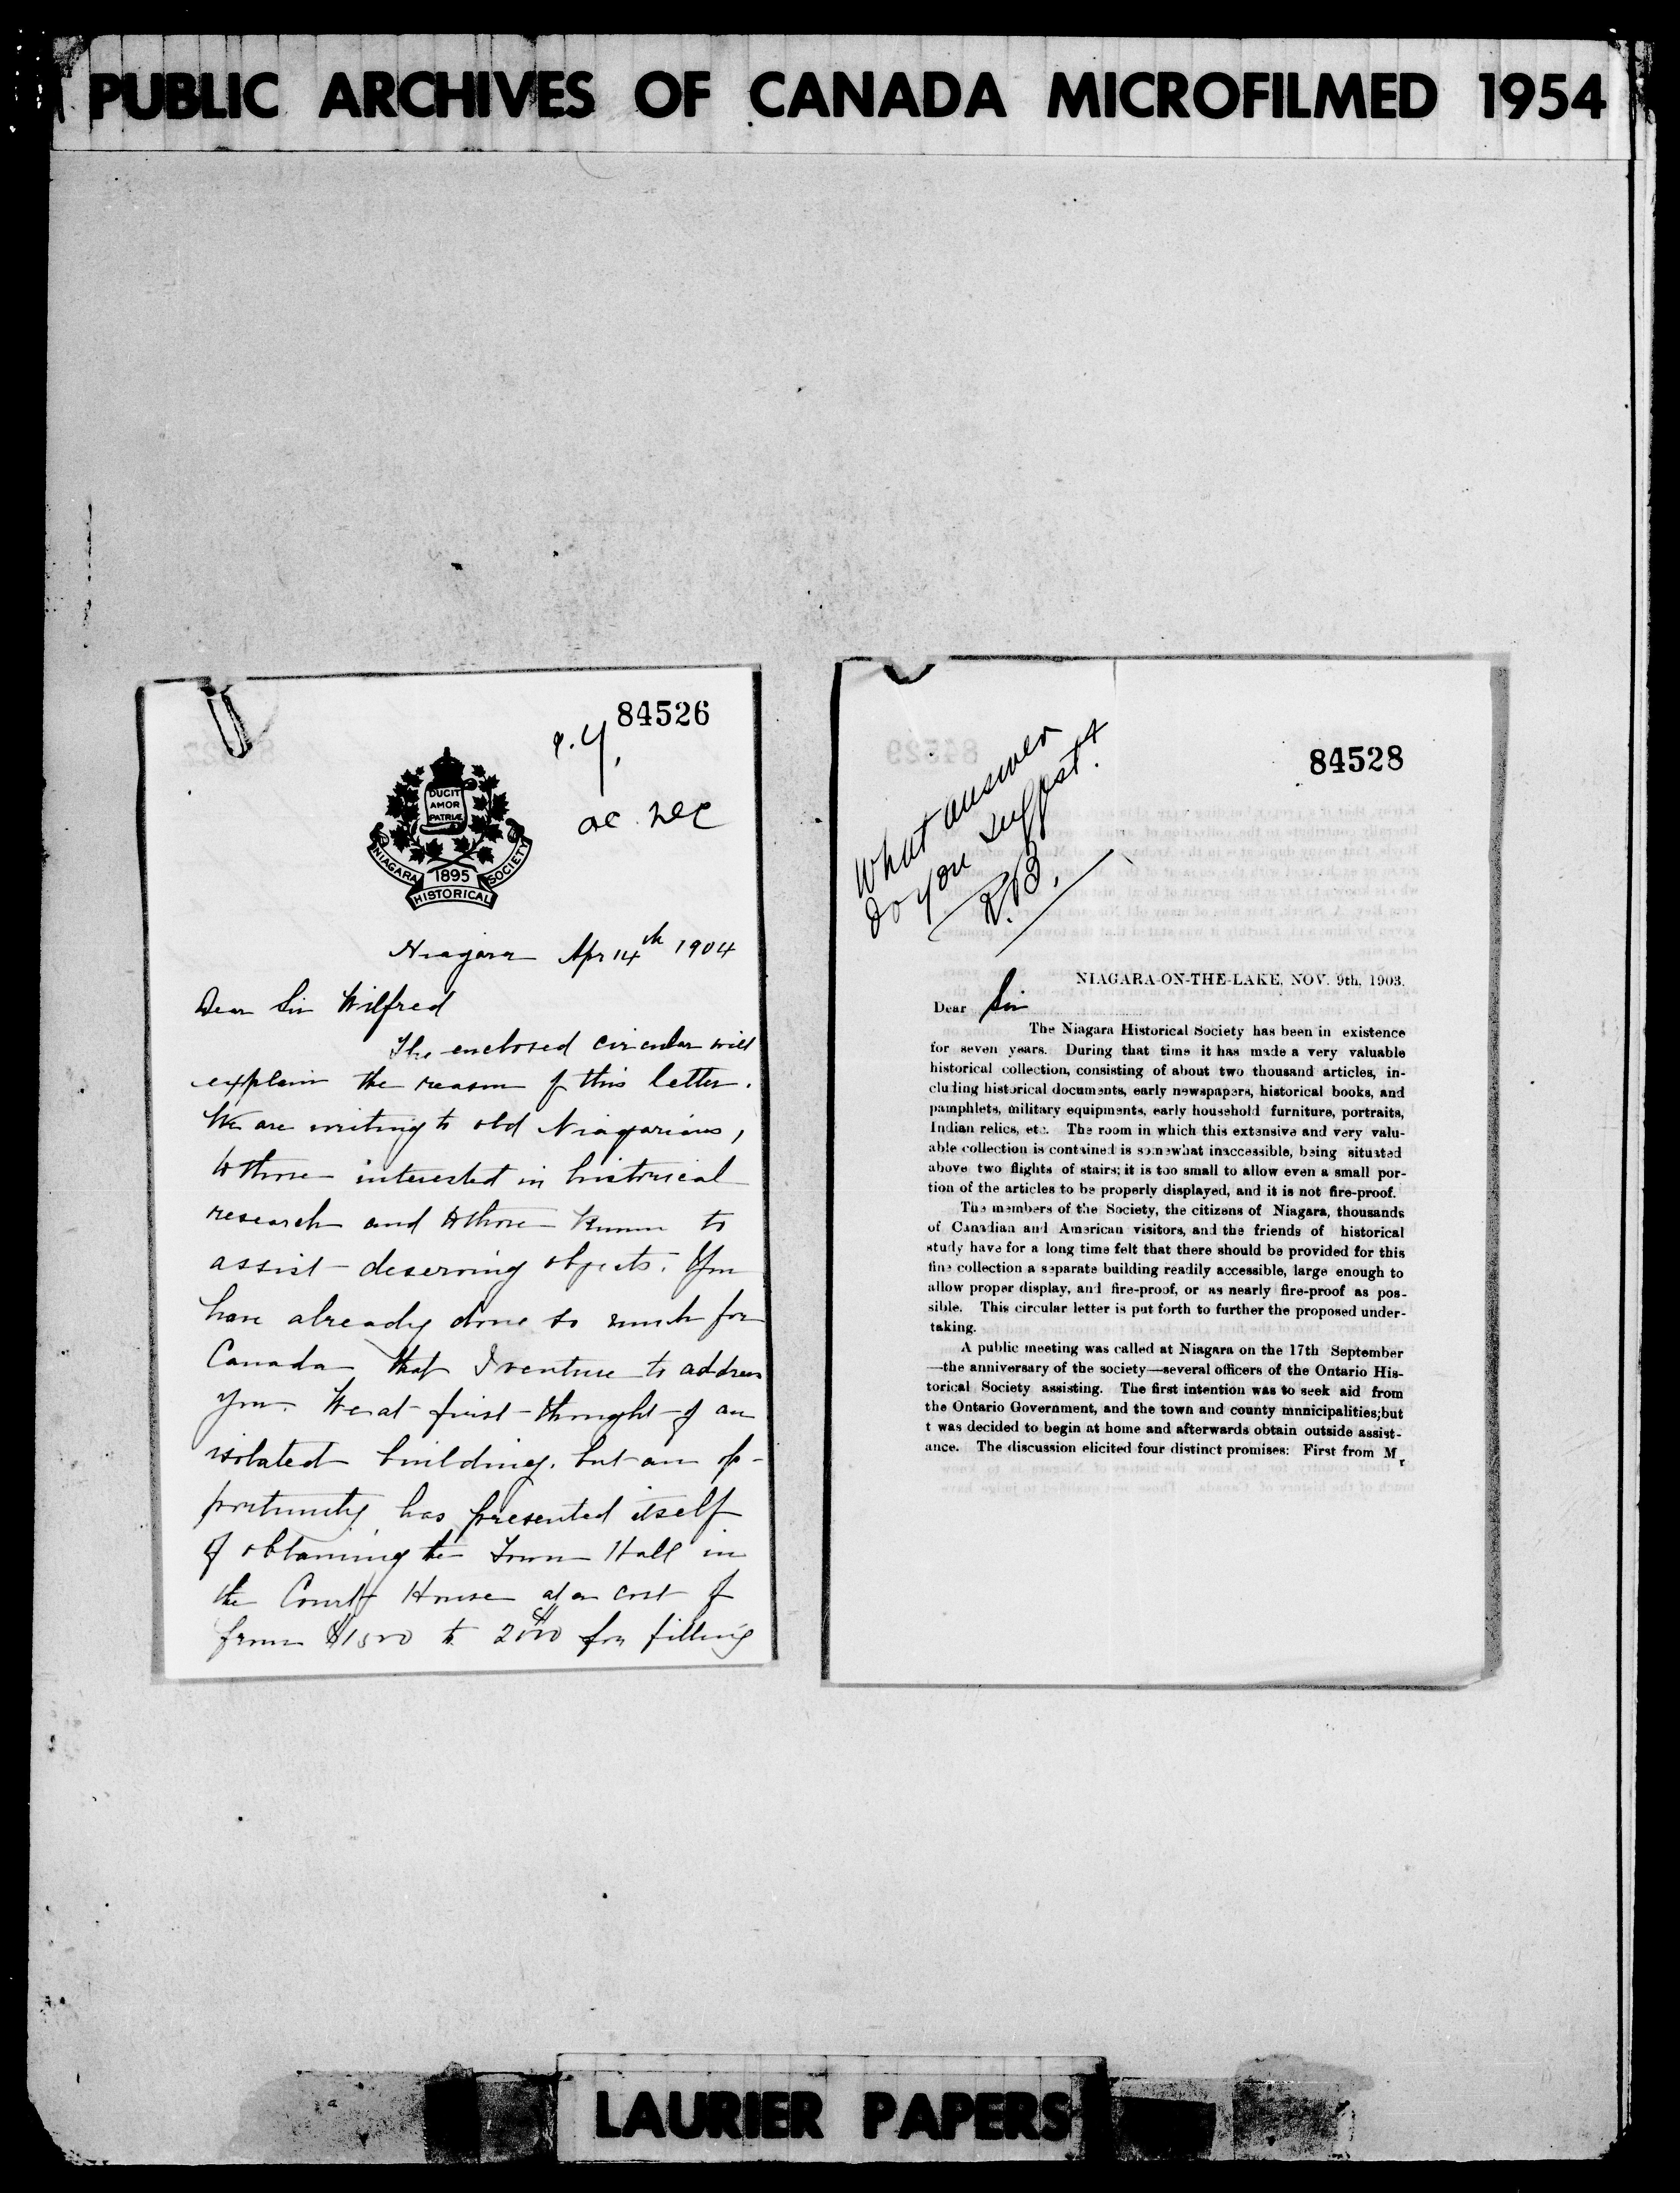 PUBLIC ARCHIVES OF CANADA MICROFILMED 1954
84526
DUCIT
AMOR
PATRIÆ
NIAGARA 1895 SOCIETY
HISTORICAL
Niagara Apr 14th 1904
Dear Sir Wilfred
The enclosed circular will
explain the reason of this letter.
We are writing to old Niagarians,
to those interested in historical
research and to those known to
assist deserving objects. You
have already done so much for
Canada that I venture to address
you. We at first thought of an
isolated building, but an op-
portunity has presented itself
of obtaining the Town Hall in
the Court House at a cost of
from $1500 to $2000 for fitting
84528
What answer
do you suggest?
R.B.
NIAGARA-ON-THE-LAKE, NOV. 9th, 1903.
Dear Sir
The Niagara Historical Society has been in existence
for seven years. During that time it has made a very valuable
historical collection, consisting of about two thousand articles, in-
cluding historical documents, early newspapers, historical books, and
pamphlets, military equipments, early household furniture, portraits,
Indian relics, etc. The room in which this extensive and very valu-
able collection is contained is somewhat inaccessible, being situated
above two flights of stairs; it is too small to allow even a small por-
tion of the articles to be properly displayed, and it is not fire-proof.
The members of the Society, the citizens of Niagara, thousands
of Canadian and American visitors, and the friends of historical
study have for a long time felt that there should be provided for this
fine collection a separate building readily accessible, large enough to
allow proper display, and fire-proof, or as nearly fire-proof as pos-
sible. This circular letter is put forth to further the proposed under-
taking.
A public meeting was called at Niagara on the 17th September
—the anniversary of the society—several officers of the Ontario His-
torical Society assisting. The first intention was to seek aid from
the Ontario Government, and the town and county mnnicipalities;but
t was decided to begin at home and afterwards obtain outside assist-
ance. The discussion elicited four distinct promises: First from Mr
LAURIER PAPERS